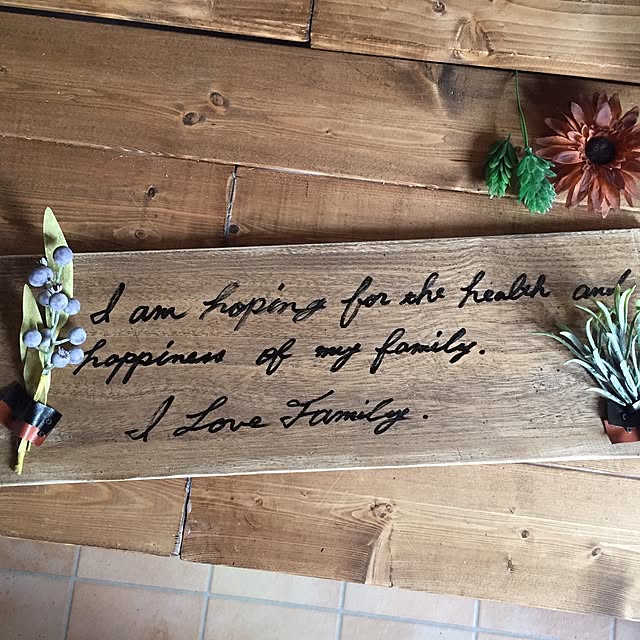 I am hoping for the health and
happiness of my family.
I Love Family.